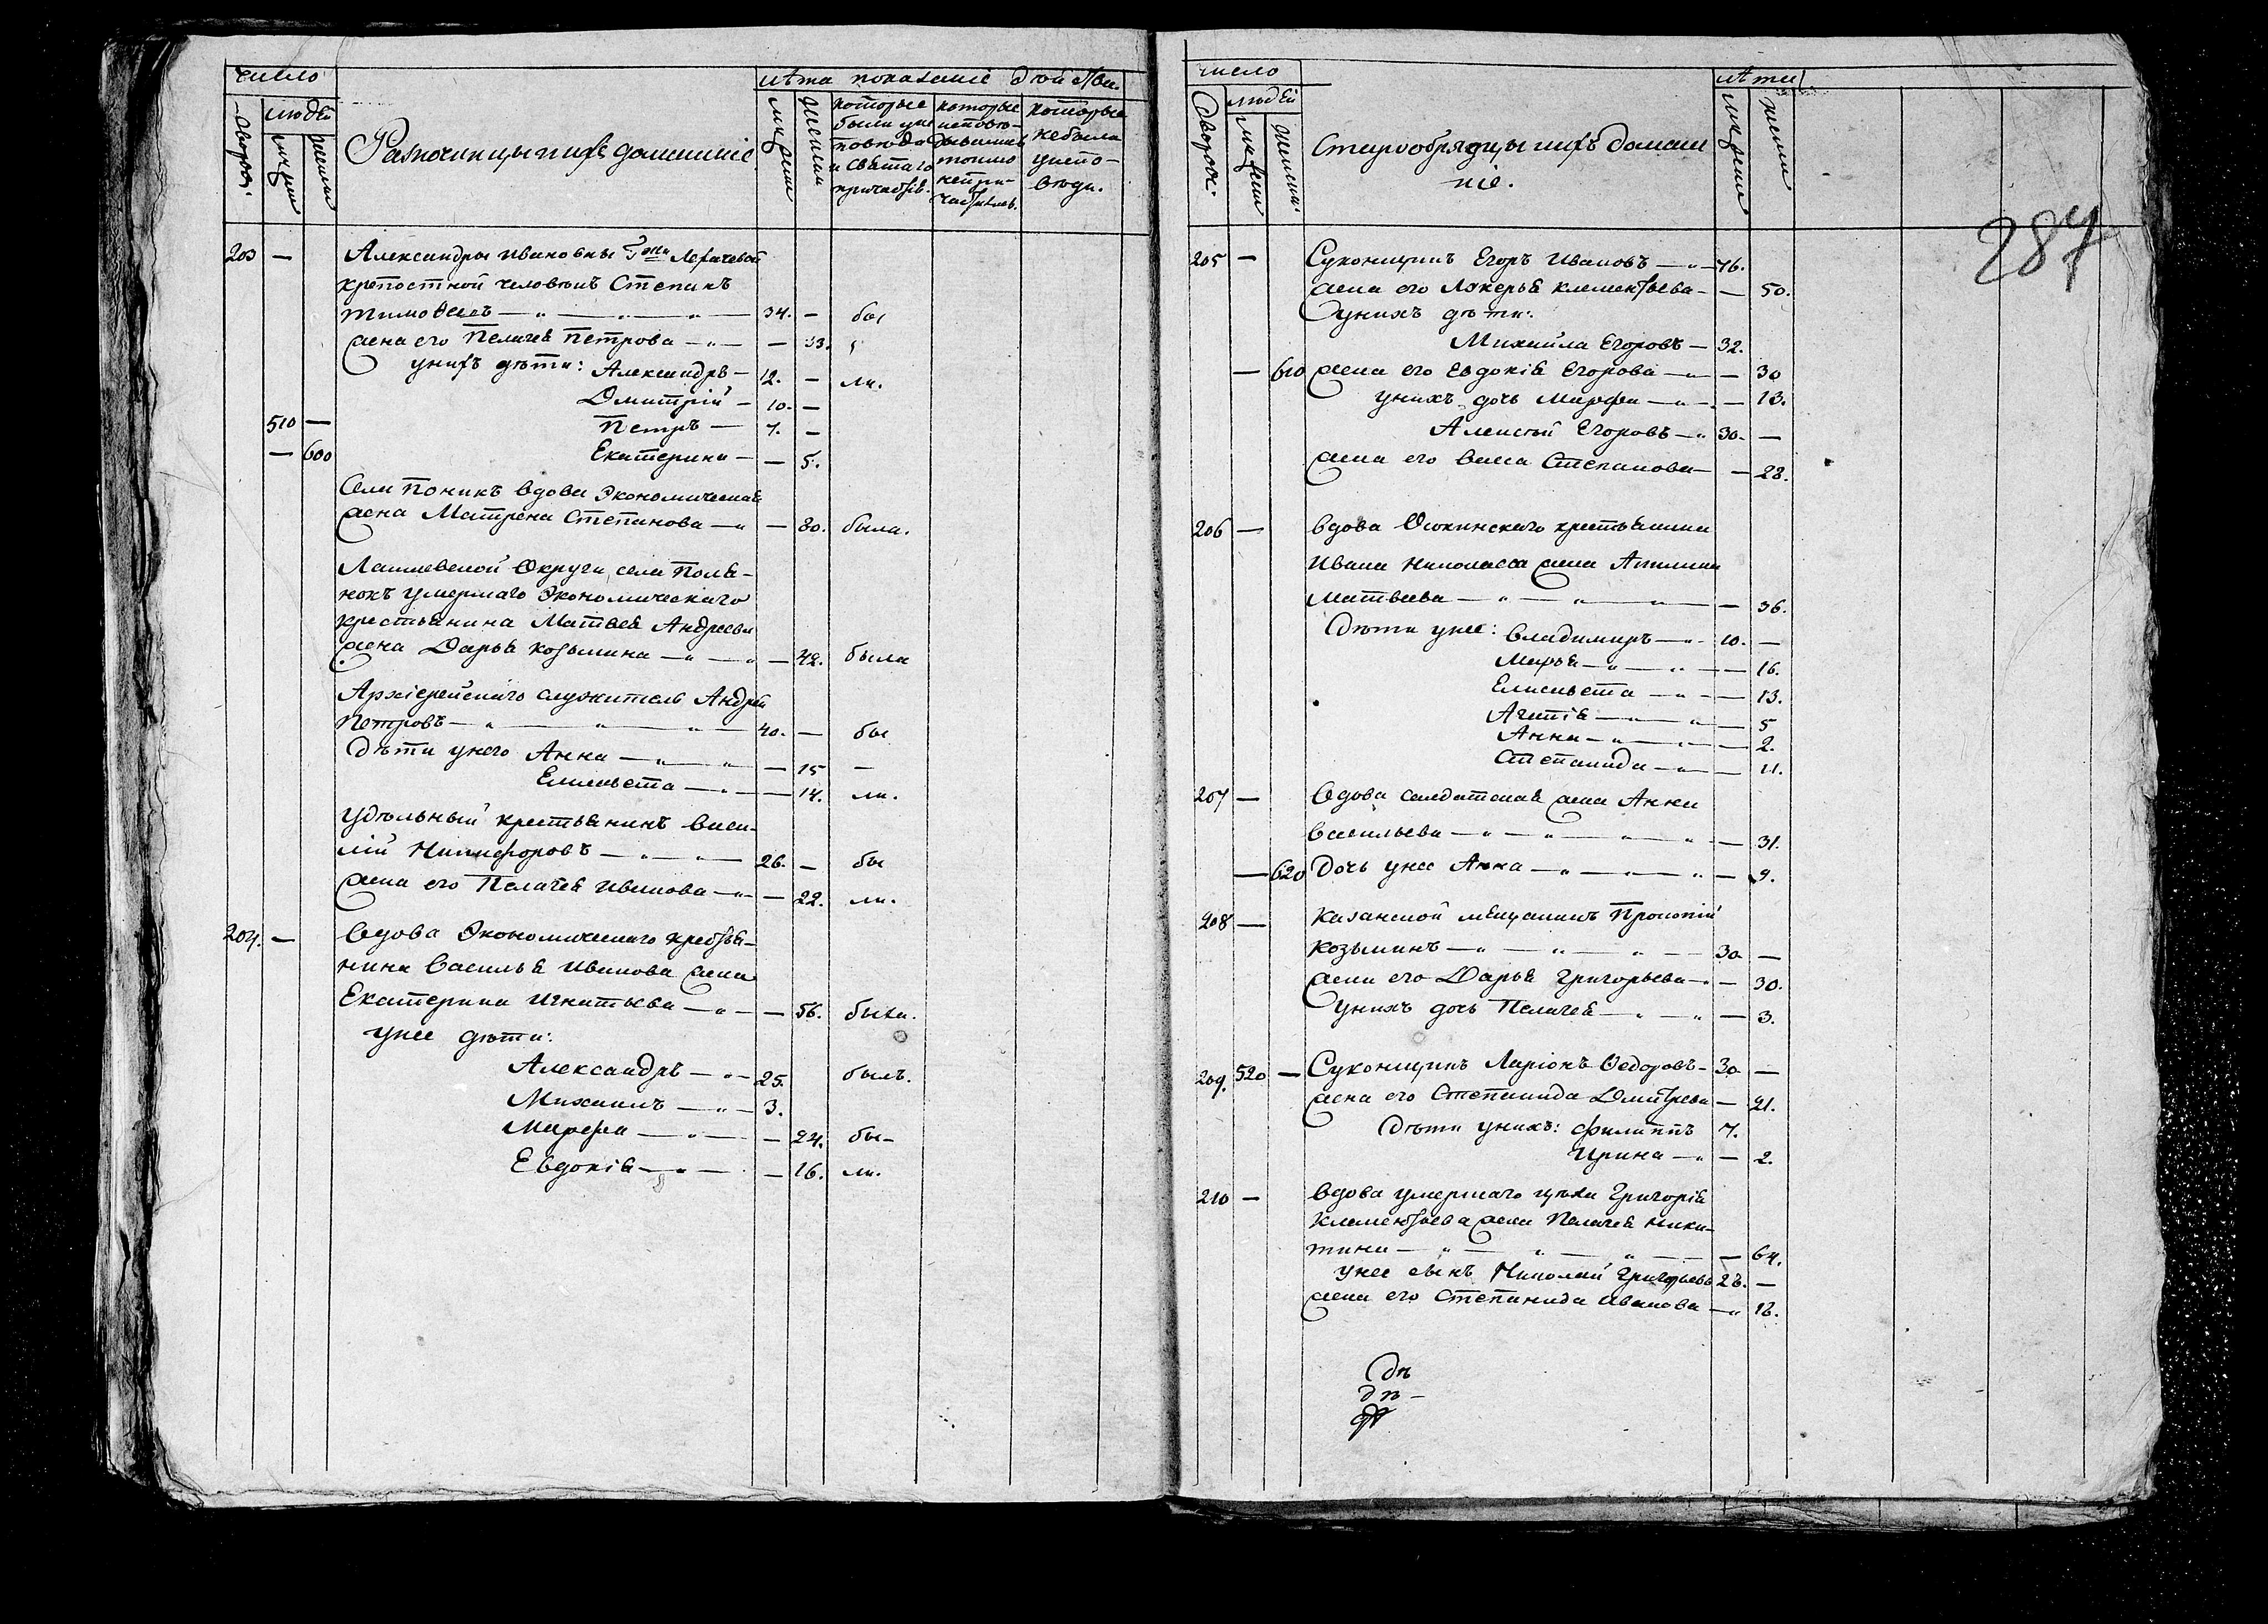 число
лѣта
показаніе
дворовъ.
людей
муж.
женска
Разночинцы и ихъ домашніе
мужеска
женска
которые были у исповѣди и Святаго причастія.
которые исповѣдывались токмо непричастились.
которые небыли уиспо-
вѣди.
203 —
Александры Ивановны Гжи
крепостной человекъ Степанъ
Тимоѳеевъ — 34. — бы
жена его Пелагея Петрова — — 33.
унихъ дѣти: Александръ — 12. — ли.
Дмитрій — 10. —
510 — Петръ — 7. —
— 600 Екатерина — — 5.
Села Поникъ вдова Экономическая
жена Матрена Степанова — — 80. была.
Лаишевской Округи, села Поля-
нокъ умершаго Экономическаго
крестьянина Матвея Андреева
жена Дарья Козьмина — — 42. была
Архіерейскаго служитель Андрей
Петровъ — 40. — бы
Дѣти унего Анна — — 15 —
Елисавета — — 14. ли.
Удѣльный крестьянинъ Васи-
лій Никифоровъ — 26. — бы
жена его Пелагея Иванова — — 22. ли.
204. —
Вдова Экономическаго крестья-
нина Василья Иванова жена
Екатерина Игнатьева — — 56. была.
унее дѣти:
Александръ — 25. былъ.
Михаилъ — 3.
Марфа — — 24. бы-
Евдокія — — 16. ли.
число
лѣта
дворовъ.
людей
мужеска
женска.
Старообрядцы ихъ домаш
ніе.
мужеска
женска
287
205 — Суконщикъ Егоръ Ивановъ — 76.
жена его Лукерья Клементьева — — 50.
унихъ дѣти:
Михайла Егоровъ — 32.
— 610 жена его Евдокія Егорова — — 30
унихъ дочь Марфа — — 13.
Алексѣй Егоровъ — 30. —
жена его Васса Степанова — — 28.
206 — Вдова крестьянина
Ивана Николаева жена
Матвеева — — 36.
Дѣти унее: Владимиръ — 10. —
Марья — — 16.
Елисавета — — 13.
Агапія — — 5
Анна — — 2.
Степанида — — 11.
207 — Вдова салдатская жена Анна
Васильева — — 31.
— 620 Дочь унее Анна — — 9.
208 — Казанской мещанинъ Прокопій
Козьминъ — 30 —
жена его Дарья Григорьева — — 30.
Унихъ дочь Пелагея — — 3.
209. 520 — Суконщикъ Ларіонъ Ѳедоровъ — 30 —
жена его Степанида Дмитрева — 21.
Дѣти унихъ: Филиппъ 7.
Ирина — — 2.
210 — Вдова умершаго цеха Григорія
Клементьева жена Пелагея Ники-
тина — — 64.
унее сынъ Николай Григорьевъ 28. —
жена его Степанида Иванова — 18.
Дѣ
дѣ —